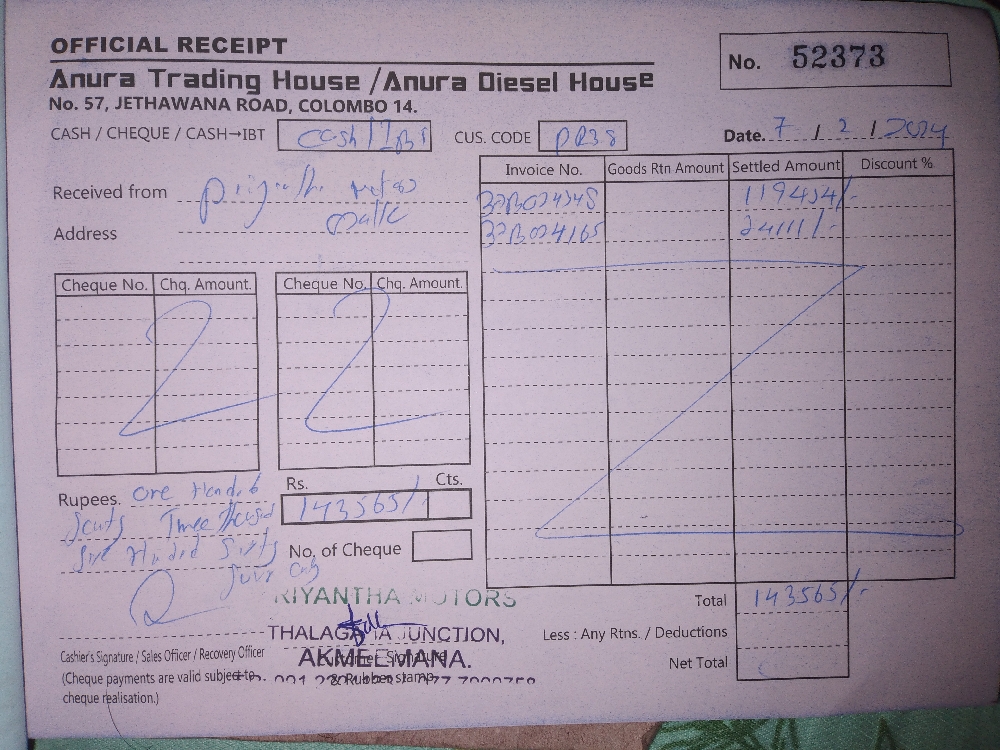 OFFICIAL RECEIPT
Anura Trading House /Anura Diesel House
No. 57, JETHAWANA ROAD, COLOMBO 14.
No. 52373
CASH / CHEQUE / CASH→IBT Cash/IBT CUS. CODE PR38 Date. 7 / 2 / 2024
Invoice No. Goods Rtn Amount Settled Amount Discount %
Received from
119454/-
Address
24111/-
Cheque No. Chq. Amount. Cheque No. Chq. Amount.
Rupees. One
Rs. Cts.
143565/-
Three
No. of Cheque
only
RIYANTHA MOTORS
THALAGAHA JUNCTION,
AKMEEMANA.
Total 143565/-
Less : Any Rtns. / Deductions
Net Total
Cashier's Signature / Sales Officer / Recovery Officer
Customer Signature
& Rubber stamp
(Cheque payments are valid subject to
cheque realisation.)